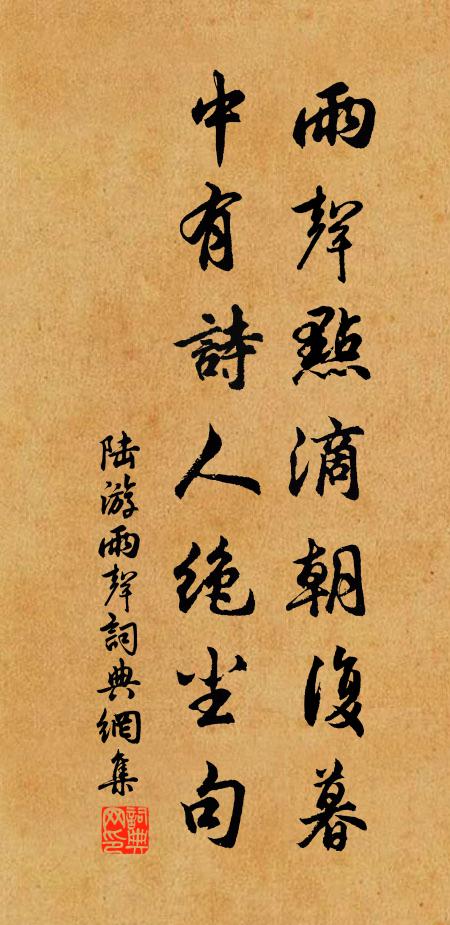 雨聲點滴朝復暮
中有詩人絶尘句
陆游雨聲詞典網集
詞典网印